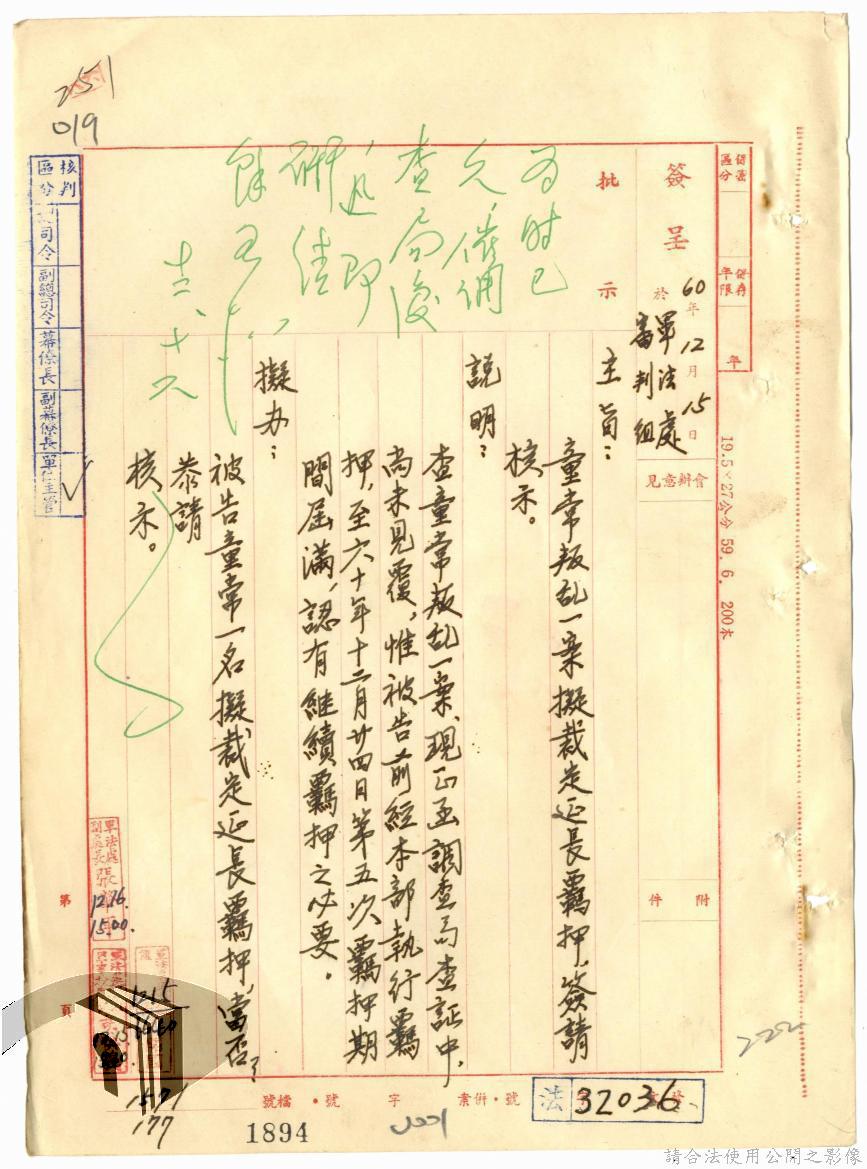 251
019
保密區分
保存年限
年
19.5×27公分 59. 6. 200本
簽呈
於
60年12月15日
軍法處
審判組
會辦意見
附件
批示
為時已
久,催調
查局復
,迅即
辦結
十二、十六
主旨:
童常叛乱一案擬裁定延長羈押,簽請
核示。
說明:
查童常叛乱一案,現正函調查局查証中,
尚未見覆,惟被告前經本部執行羈
押,至六十年十二月廿四日第五次羈押期
間屆滿,認有繼續羈押之必要。
擬办:
被告童常一名擬裁定延長羈押,當否?
恭請
核示。
核判區分
司令
副總司令
幕僚長
副幕僚長
單位主管
軍法處
副處長
張
12.16.
15.00.
1215
1571
177
第
頁
222
法
32036
號
併案
字
號
檔號
1894
請合法使用公開之影像